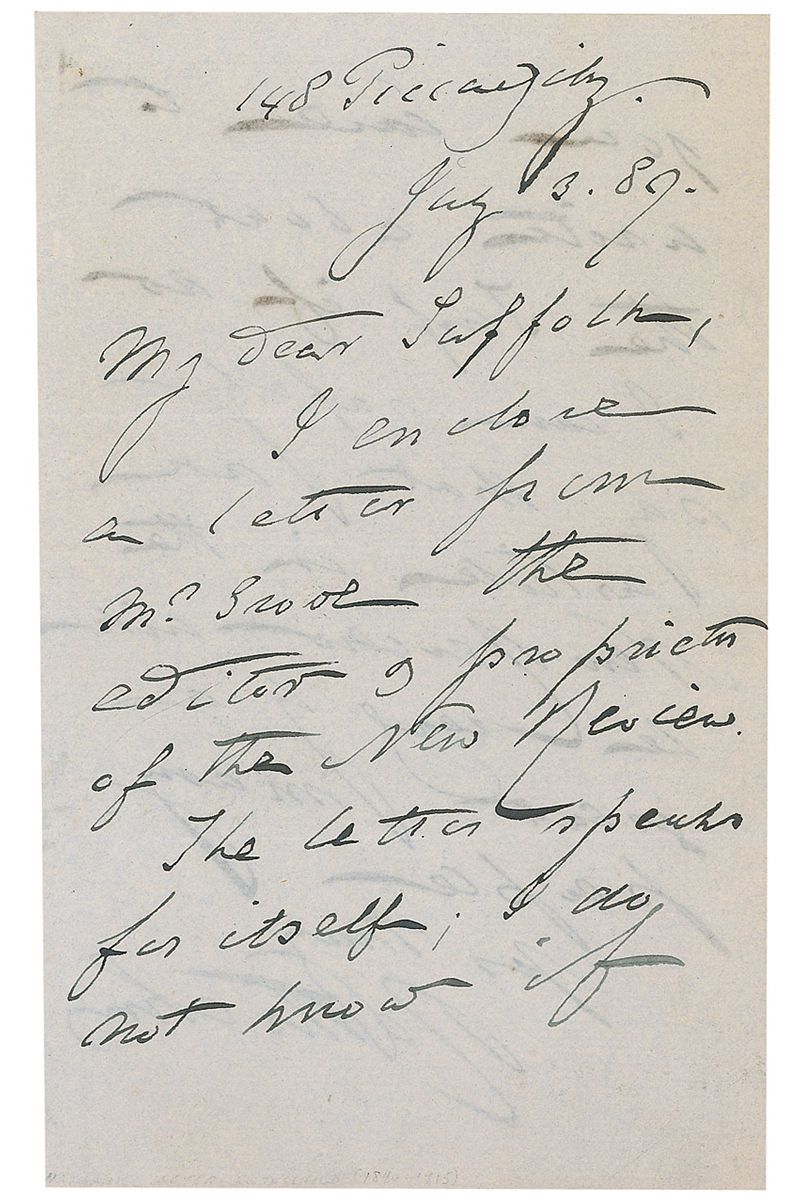 148 Piccadilly.
July 3. 89.
My dear Suffolk,
I enclose
a letter from
Mr. Grove the
editor & proprietor
of the New Review.
The letter speaks
for itself; I do
not know if
(1840-1915)